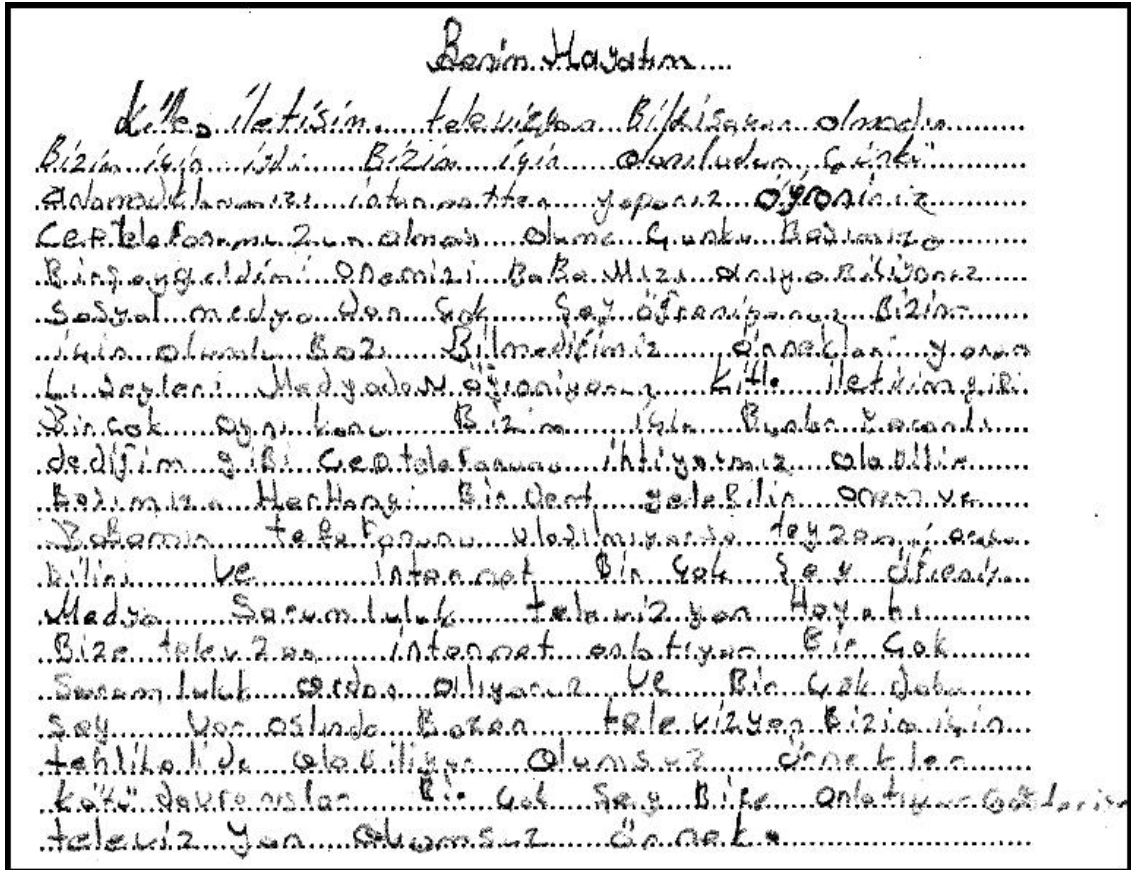 Benim Hayatım
Kitle iletisim televizyon Bilgisayar olmadın
Bizim için Bizim için Çünkü
internetten yaparız öğreniriz
Cep telefonumuzun olması olumlu Çunku Basımıza
Birşey geldimi Anemizi BaBaMızı arıyaBiliyoruz
Sosyal medya dan Çok Şey öğreniyoruz Bizim
için olumlu Bazı Bilmediğimiz örnekleri yarar
Lı şeyleri Medyadan öğreniyoruz Kitle iletisim giBi
Birçok aynı konu Bizim için Bunlar Yararlı
dediğim giBi Cep telefonunu ihtiyacımız olabilir
Basımıza HerHangi Bir dert geleBilir anem ve
Babamın telefonunu teyzemi
bilirim ve internet Bir Çok Şey
Medya Sorumluluk televizyon Hayatı
Bize internet anlatıyor Bir Çok
Sorumluluk ordan alıyoruz ve Bir Çok daha
Şey Var aslında Bazen televizyon Bizim için
tehlikelide olabiliyor Olumsuz örnekler
kötü davranıslar Bir Çok Şey Bize anlatıyor
televiz yon olumsuz örnek.